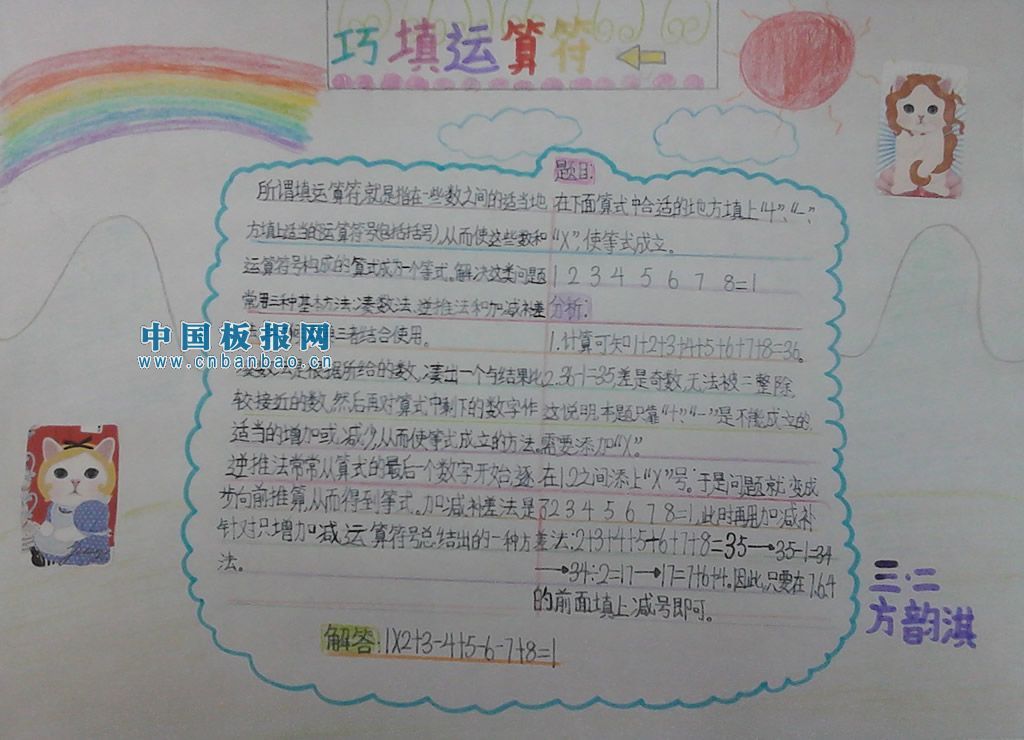 巧填运算符
题目:
所谓填运算符,就是指在一些数之间的适当地
方填上适当的运算符号(包括括号),从而使这些数和
运算符号构成的算式成为一个等式。解决这类问题
常用三种基本方法:凑数法、逆推法和加减补差
三者结合使用。
是根据所给的数,凑出一个与结果比
较接近的数,然后再对算式中剩下的数字作
适当的增加或减少,从而使等式成立的方法。
逆推法常常从算式的最后一个数字开始,逐
步向前推算,从而得到等式。加减补差法是
针对只增加减运算符号总结出的一种方
法。
在下面算式中合适的地方填上“+”、“-”、
“X”,使等式成立。
1 2 3 4 5 6 7 8=1
分析:
1.计算可知1+2+3+4+5+6+7+8=36。
2.36-1=35,差是奇数,无法被二整除,
这说明,本题只靠“+”、“-”是不能成立的,
需要添加“X”。
在1,2之间添上“X”号。于是问题就变成
了2 3 4 5 6 7 8=1,此时再用加减补
差法:2+3+4+5+6+7+8=35→35-1=34
→34÷2=17→17=7+6+4。因此,只要在7.6.4
的前面填上减号即可。
解答:1X2+3-4+5-6-7+8=1
三·二
方韵淇
中国板报网
www.cnbanbao.cn